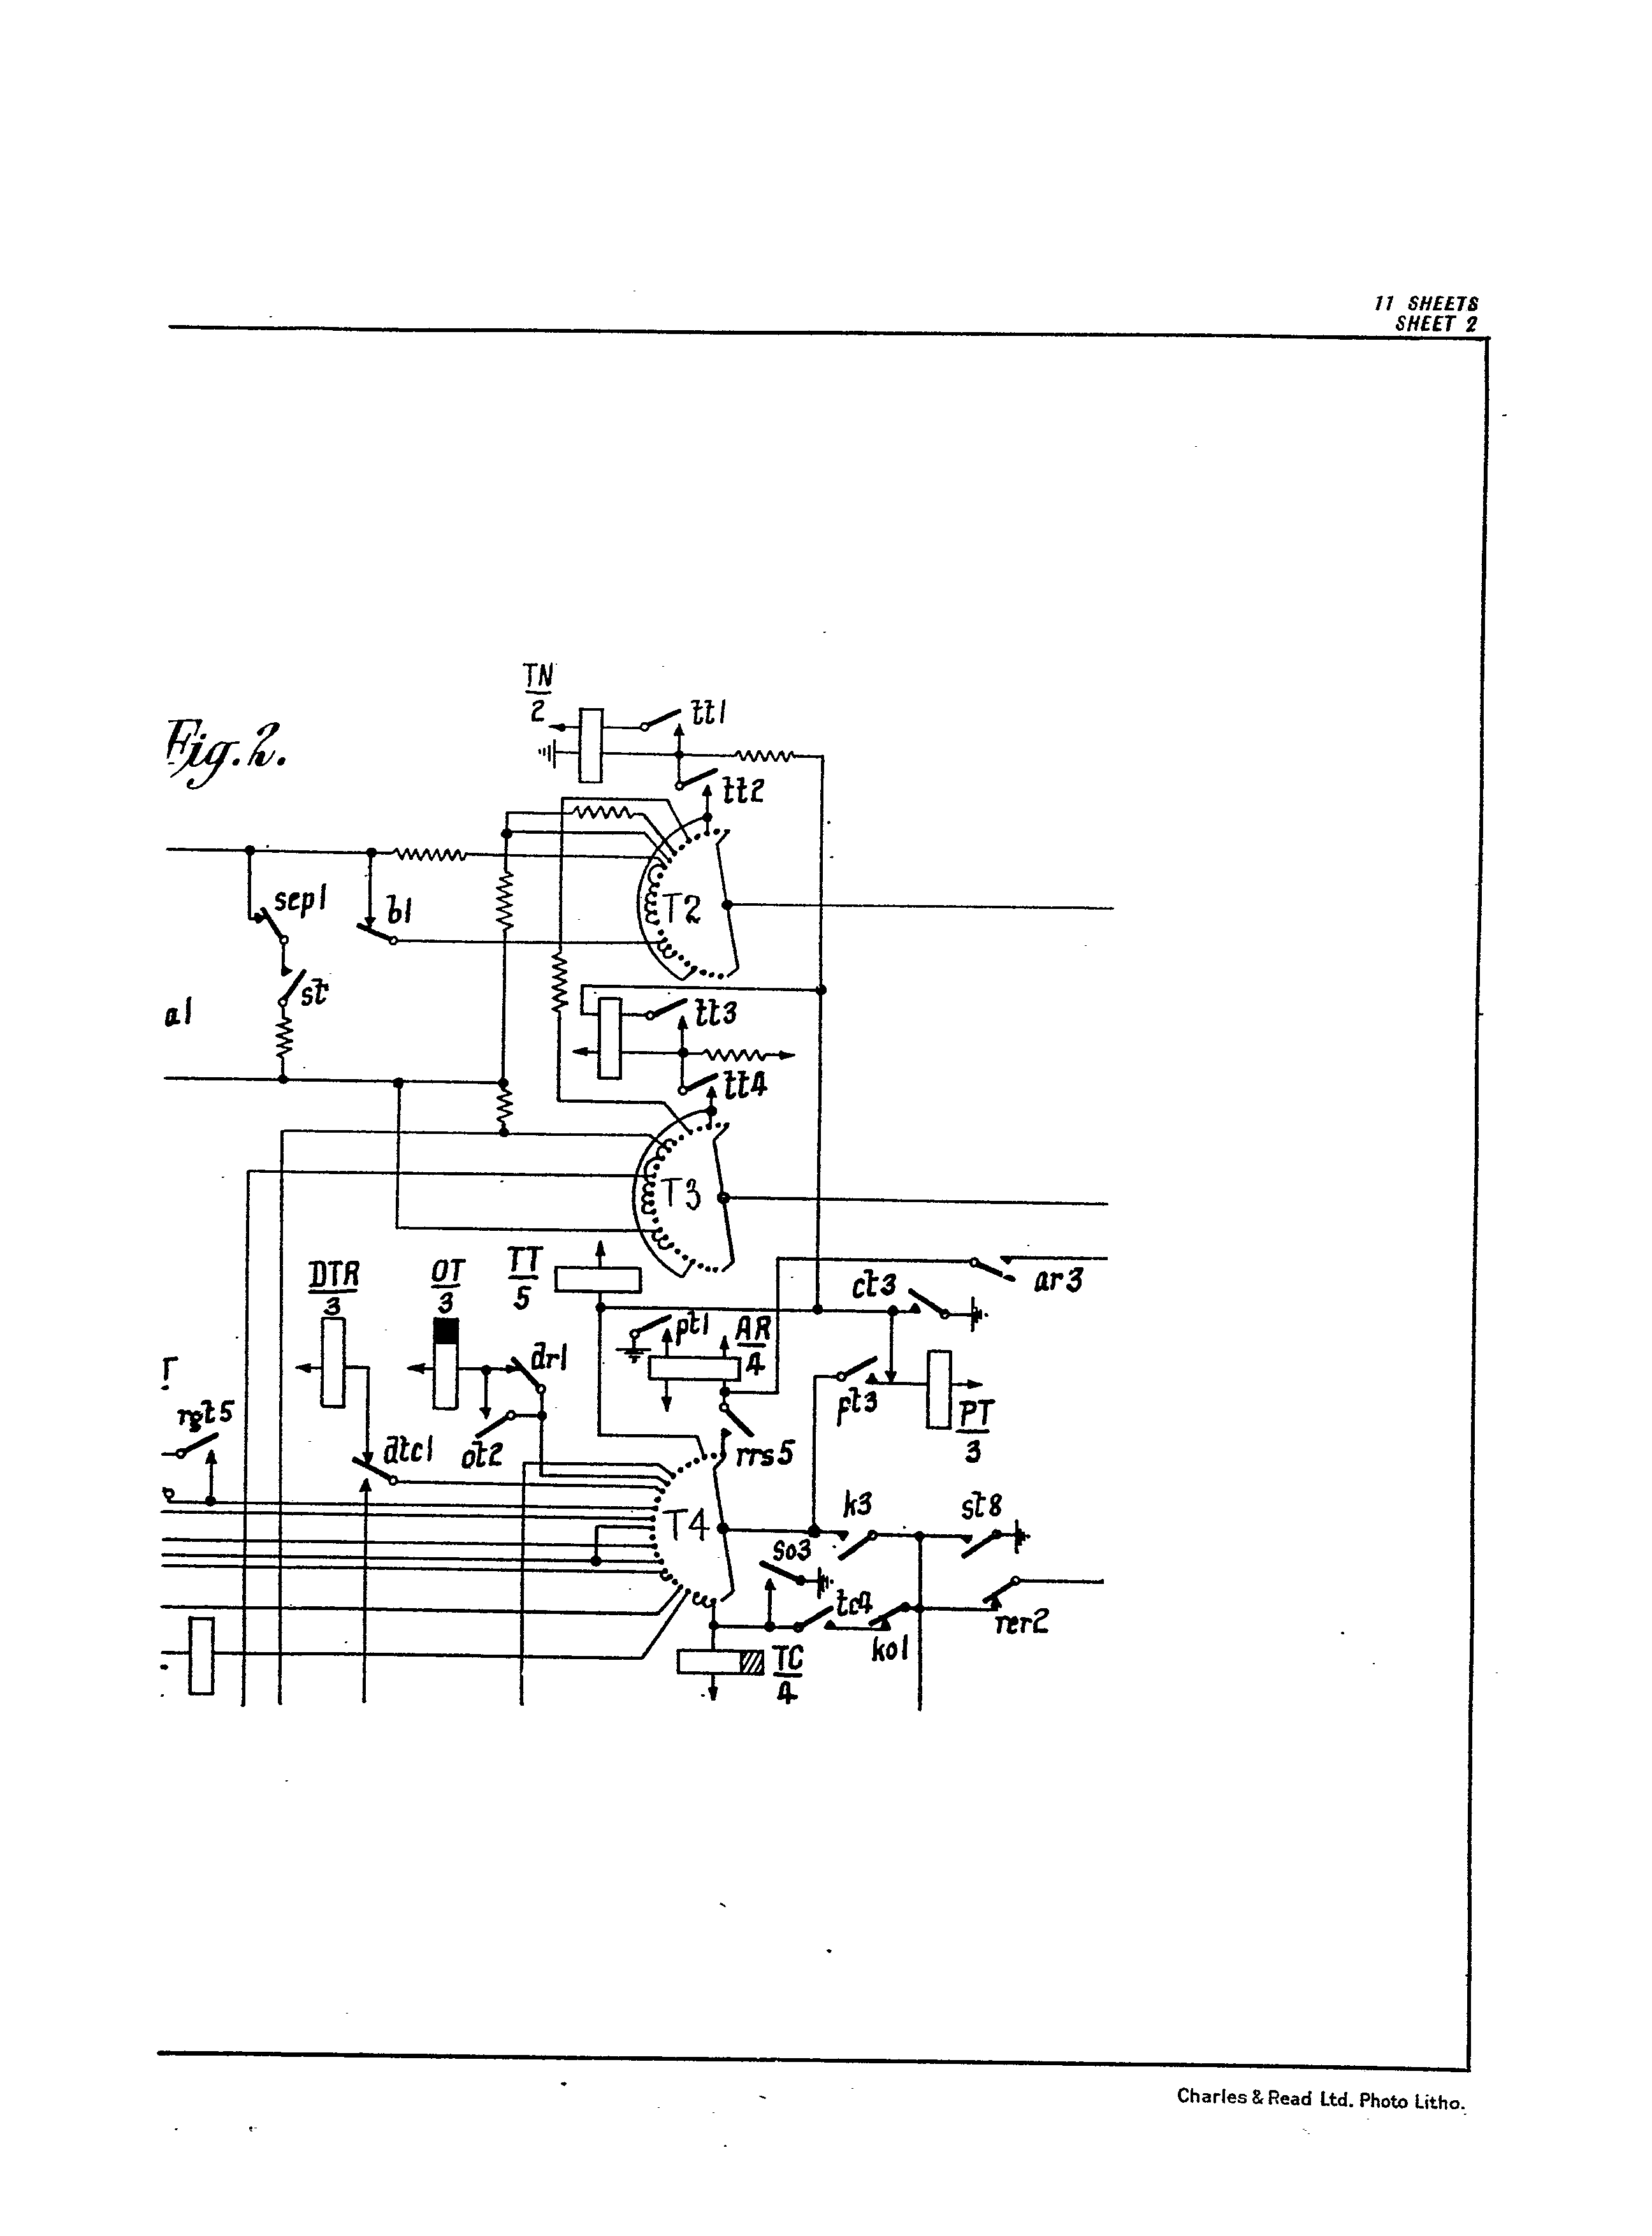 11 SHEETS
SHEET 2
Fig. 2.
TN
2
tt1
tt2
sep1
b1
T2
st
a1
tt3
tt4
T3
DTR
3
OT
3
TT
5
ct3
ar3
pt1
AR
4
dr1
pt3
PT
3
rgt5
dtc1
ot2
rrs5
T4
k3
st8
so3
tc4
ko1
rer2
TC
4
Charles & Read Ltd. Photo Litho.